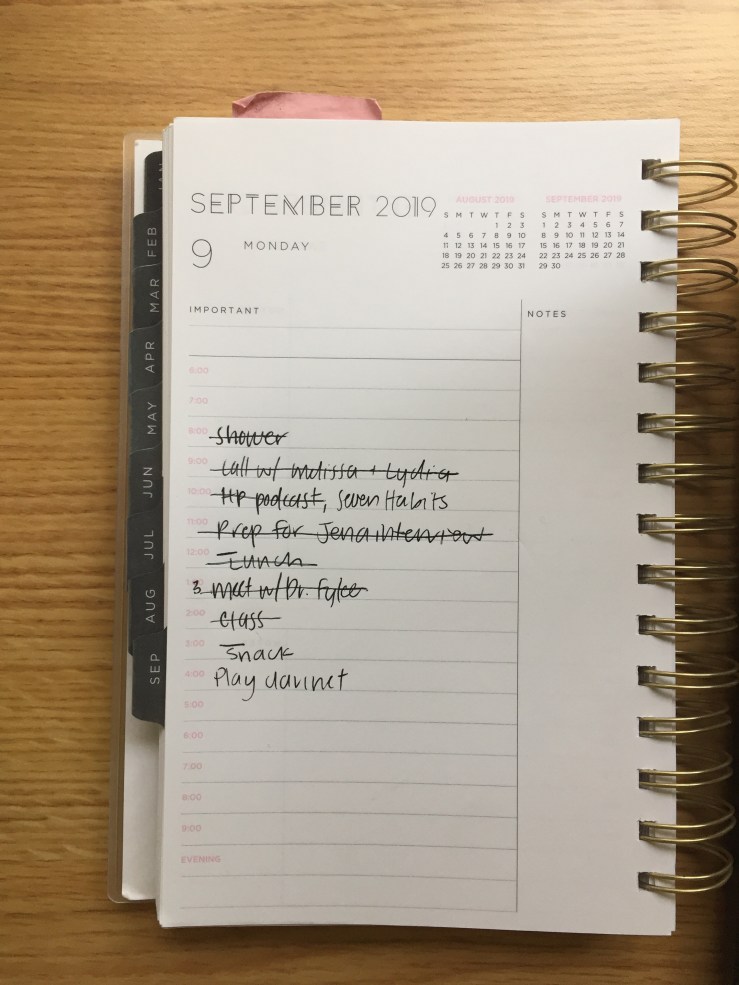 JAN
FEB
MAR
APR
MAY
JUN
JUL
AUG
SEP
SEPTEMBER 2019
9 MONDAY
AUGUST 2019
S M T W T F S
1 2 3
4 5 6 7 8 9 10
11 12 13 14 15 16 17
18 19 20 21 22 23 24
25 26 27 28 29 30 31
SEPTEMBER 2019
S M T W T F S
1 2 3 4 5 6 7
8 9 10 11 12 13 14
15 16 17 18 19 20 21
22 23 24 25 26 27 28
29 30
IMPORTANT
6:00
7:00
8:00 shower
9:00 call w/ melissa + Lydia
10:00 HP podcast, Seven Habits
11:00 Prep for Jena interview
12:00 Lunch
3 meet w/ Dr.
2:00 class
3:00 snack
4:00 Play clarinet
5:00
6:00
7:00
8:00
9:00
EVENING
NOTES